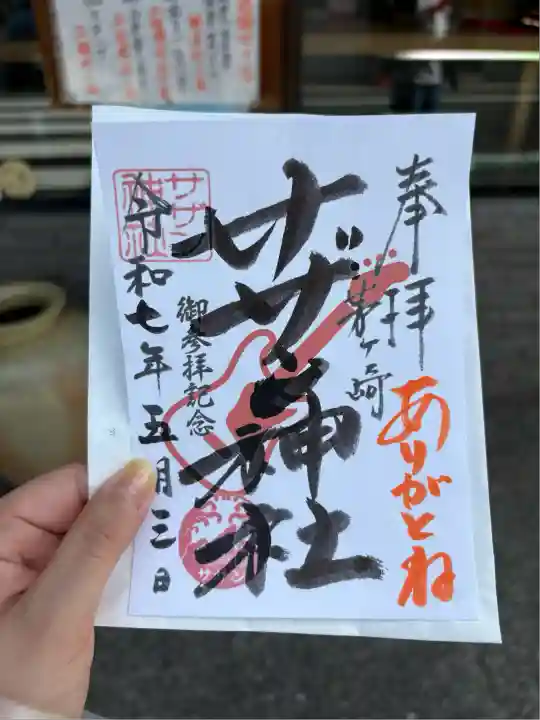 奉拝
ありがとね
茅ヶ崎
サザン神社
御参拝記念
令和七年五月三日
サザン
神社